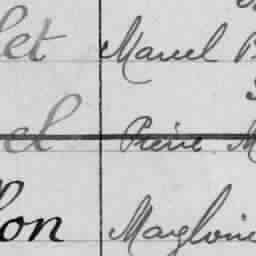 let Marcel B
el Pierre M
lon Magloire